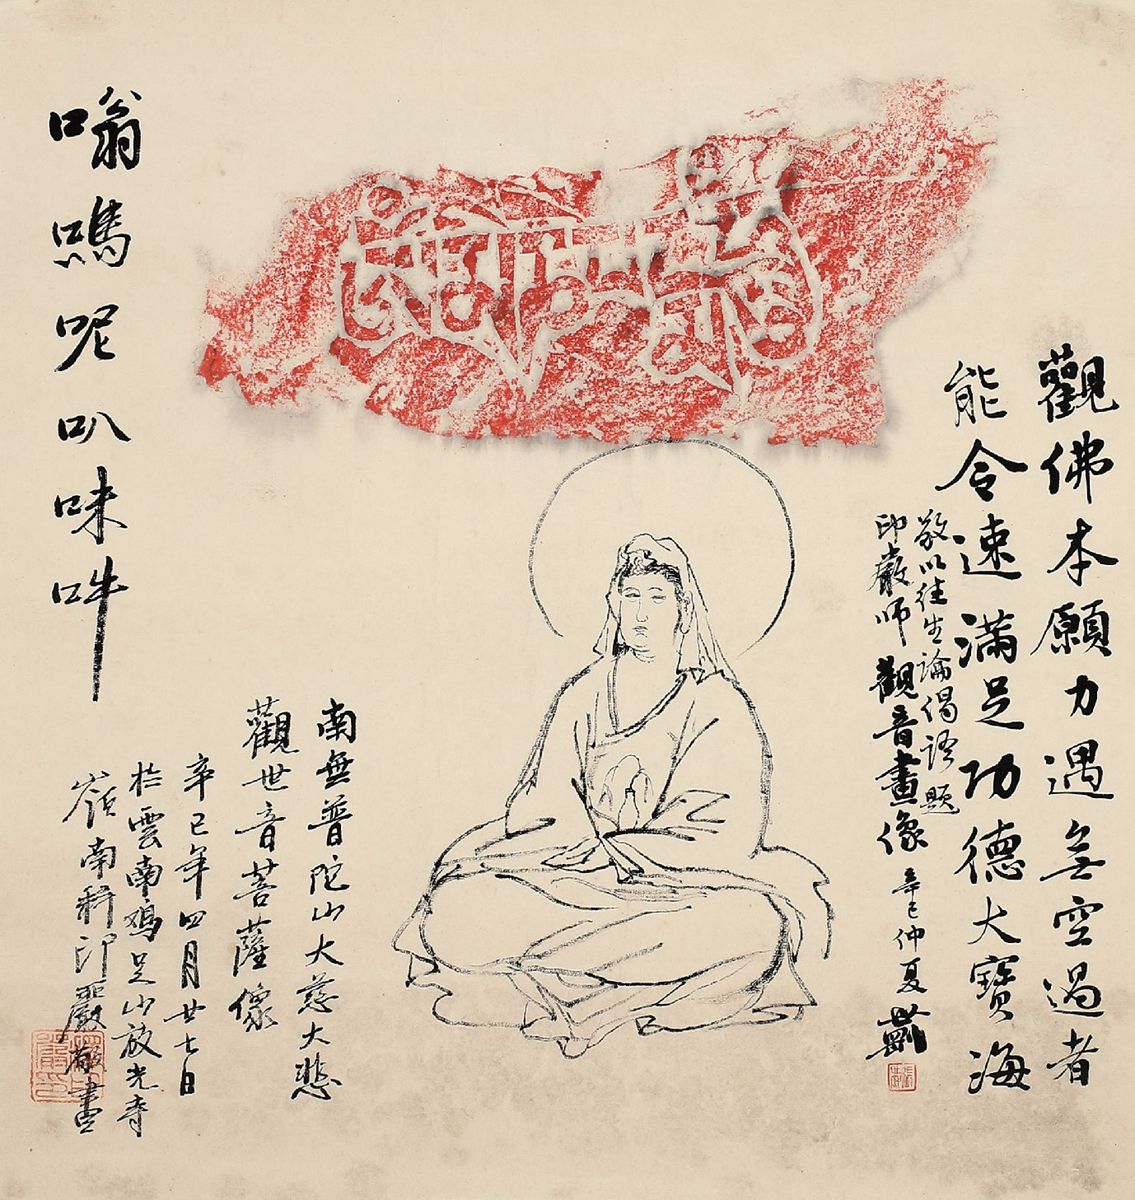 觀佛本願力遇無空過者
能令速滿足功德大寶海
敬以往生論偈語題
印嚴師觀音畫像
辛巳仲夏
南無普陀山大慈大悲
觀世音菩薩像
辛巳年四月廿七日
於雲南鸡足山放光寺
嶺南釋印嚴敬畫
嗡嗎呢叭咪吽